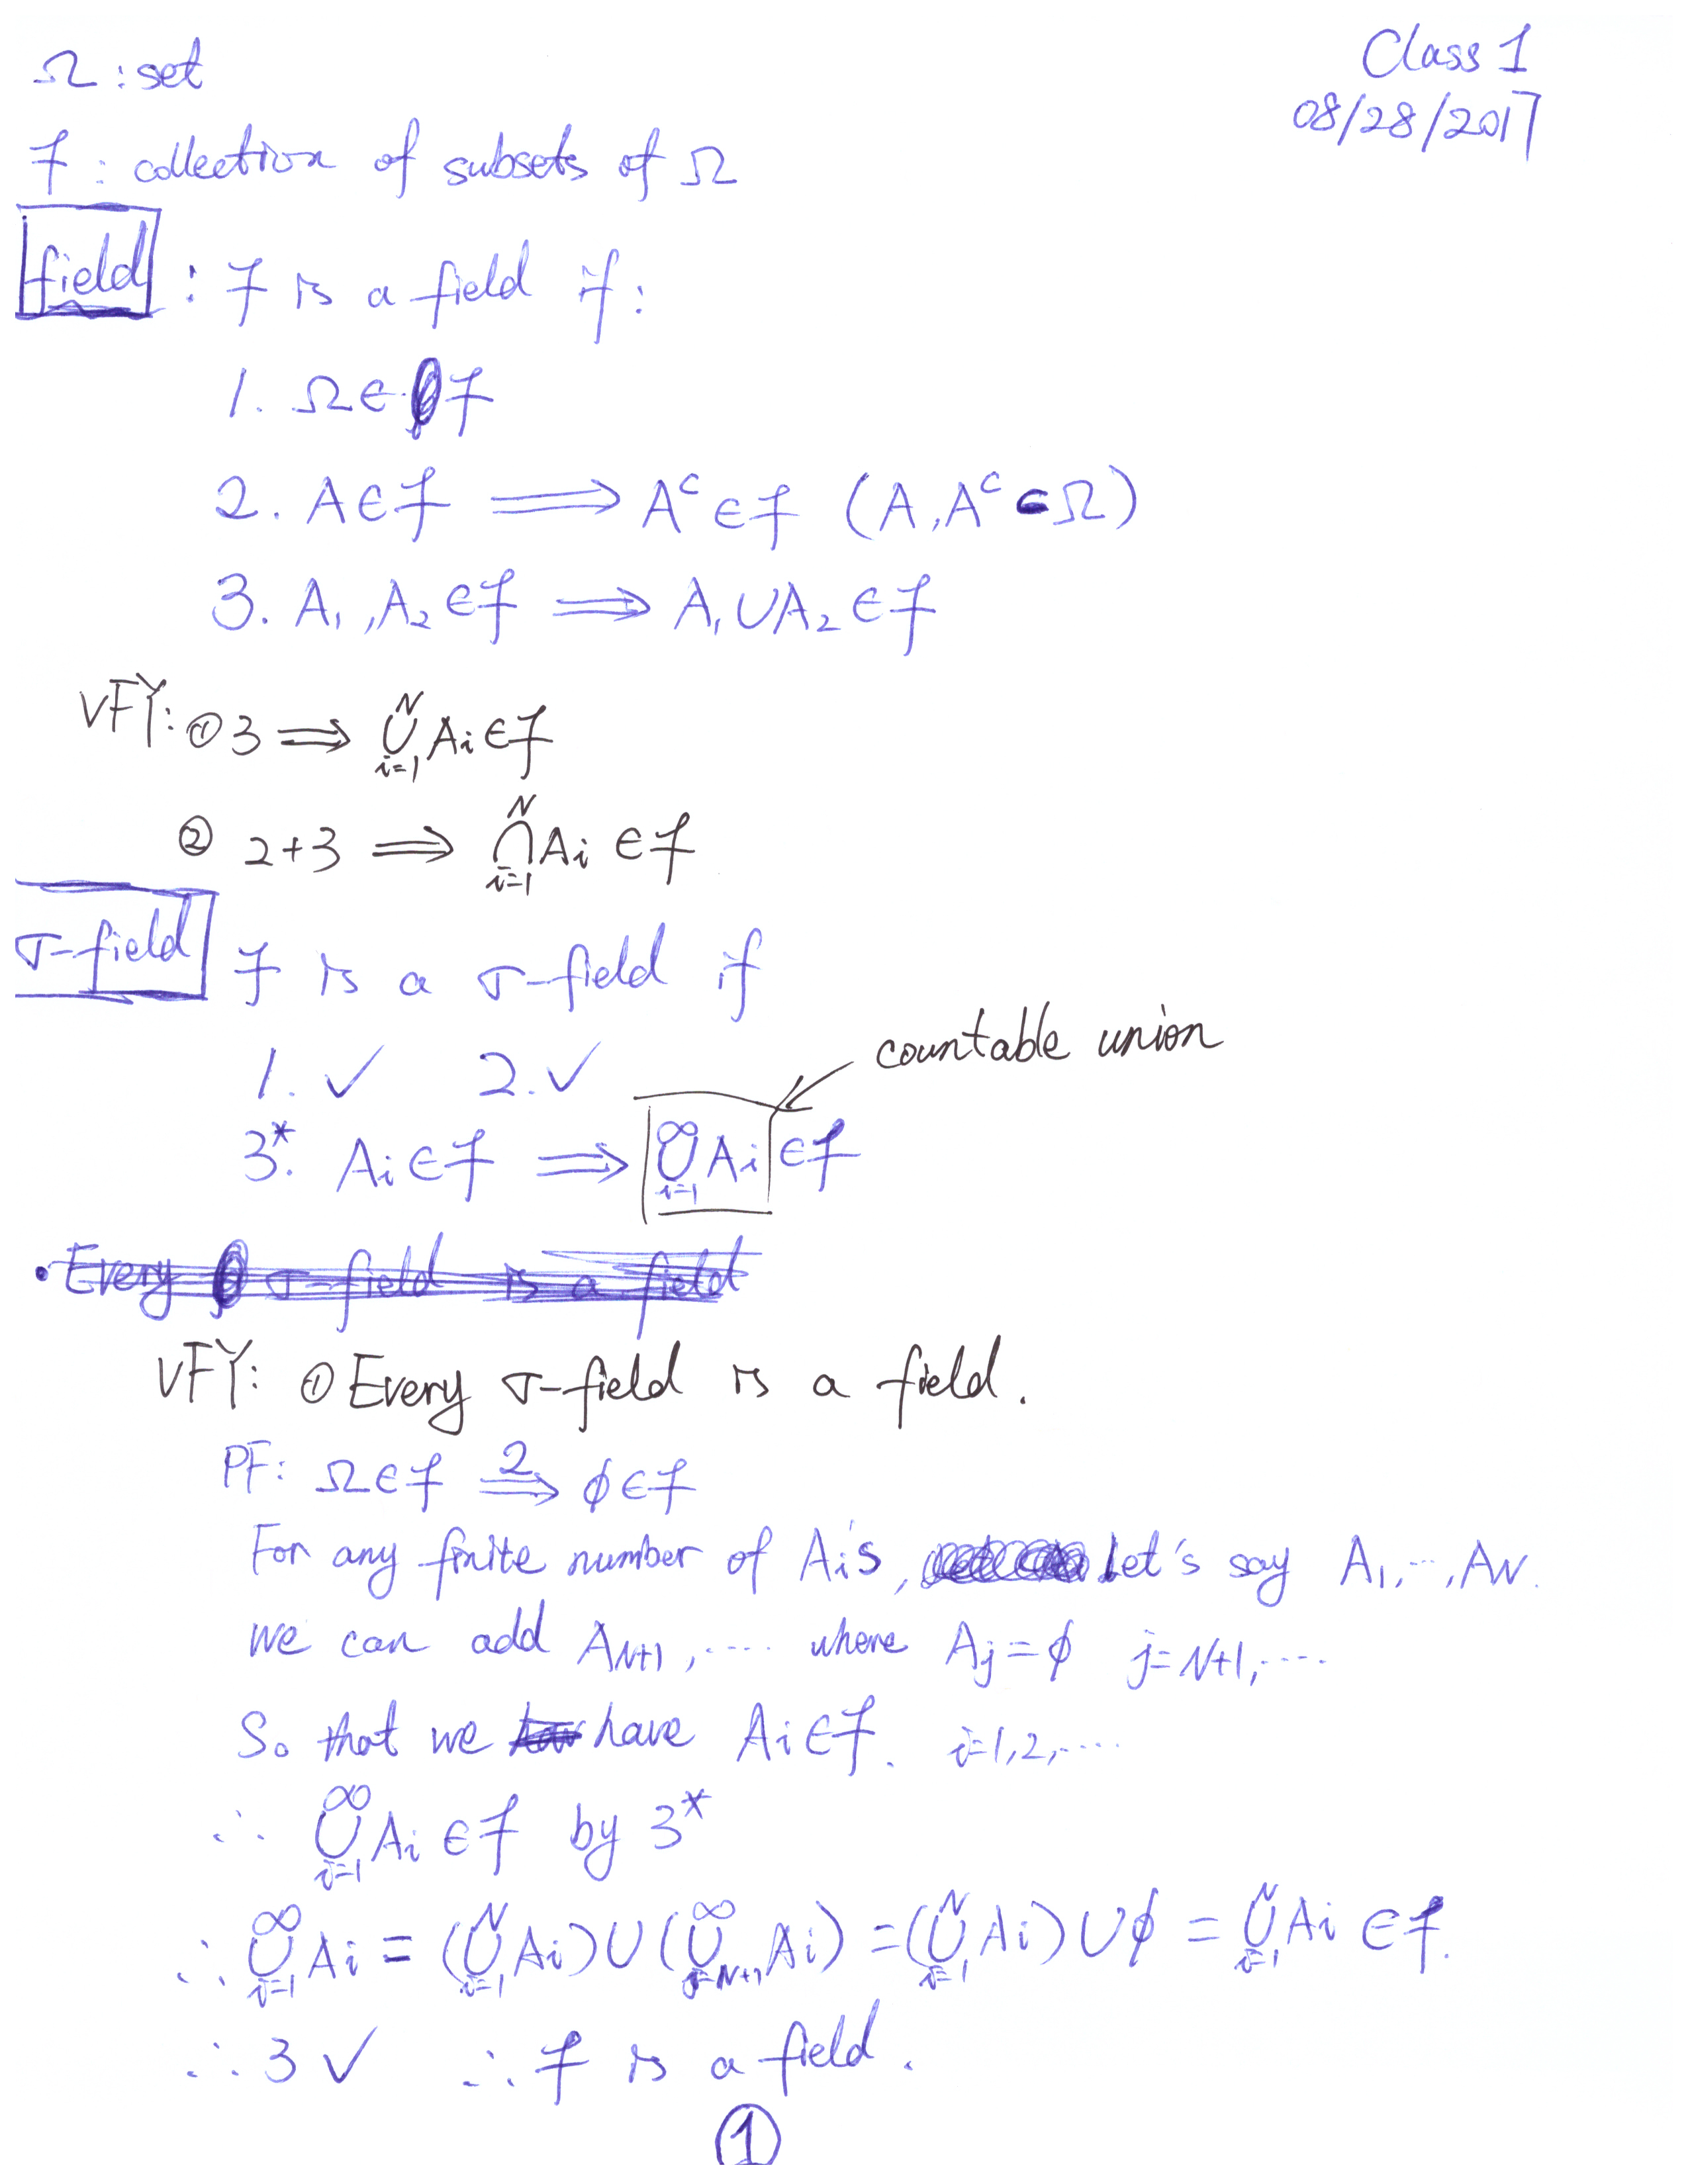 Class 1
08/28/2017
Ω : set
𝓕 : collection of subsets of Ω
field : 𝓕 is a field if :
1. Ω ∈ 𝓕
2. A ∈ 𝓕 ⟹ Aᶜ ∈ 𝓕 (A, Aᶜ ⊂ Ω)
3. A₁, A₂ ∈ 𝓕 ⟹ A₁ ∪ A₂ ∈ 𝓕
VFY: ① 3 ⟹ ⋃_{i=1}^{N} Ai ∈ 𝓕
② 2+3 ⟹ ⋂_{i=1}^{N} Ai ∈ 𝓕
σ-field 𝓕 is a σ-field if
countable union
1. ✓ 2. ✓
3*. Ai ∈ 𝓕 ⟹ ⋃_{i=1}^{∞} Ai ∈ 𝓕
• Every σ-field is a field
VFY: ① Every σ-field is a field.
PF: Ω ∈ 𝓕 ⟹² ϕ ∈ 𝓕
For any finite number of Ai's, Let's say A₁, ···, A_N.
we can add A_{N+1}, ···· where Aj = ϕ j=N+1, ····
So that we have Ai ∈ 𝓕. i=1,2,····
∴ ⋃_{i=1}^{∞} Ai ∈ 𝓕 by 3*
∴ ⋃_{i=1}^{∞} Ai = (⋃_{i=1}^{N} Ai) ∪ (⋃_{i=N+1}^{∞} Ai) = (⋃_{i=1}^{N} Ai) ∪ ϕ = ⋃_{i=1}^{N} Ai ∈ 𝓕.
∴ 3 ✓ ∴ 𝓕 is a field.
①